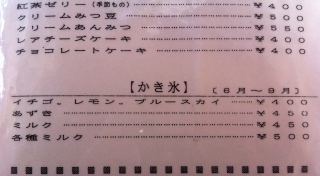 紅茶ゼリー(季節もの) ……………… ¥400
クリームみつ豆 ……………… ¥500
クリームあんみつ ……………… ¥550
レアチーズケーキ ……………… ¥400
チョコレートケーキ ……………… ¥400
【かき氷】 〔6月〜9月〕
イチゴ。レモン。ブルースカイ ……… ¥400
あずき ……………… ¥450
ミルク ……………… ¥450
各種ミルク ……………… ¥500